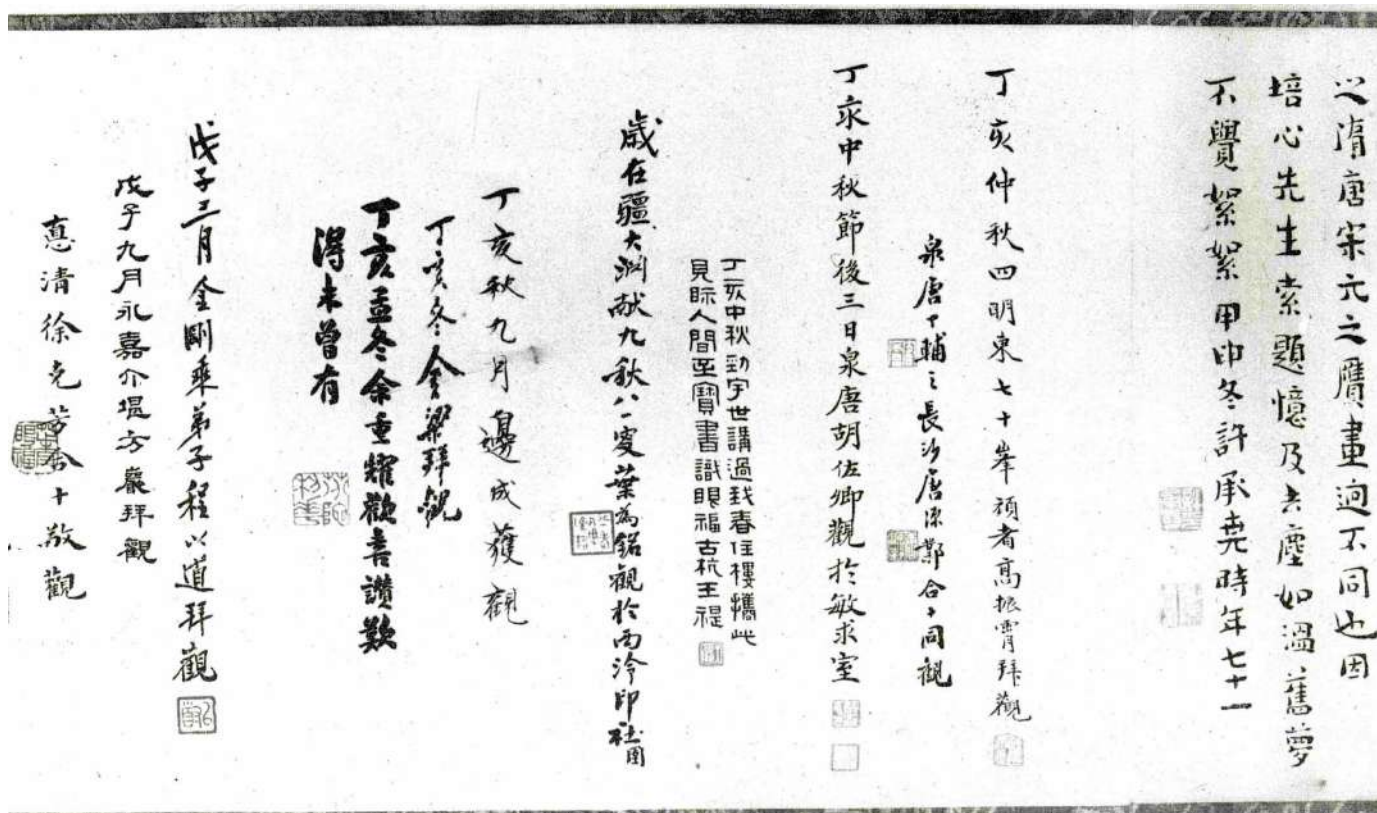 之隋唐宋元之贗畫迥不同也因
培心先生索題憶及去塵如溫舊夢
不覺絮絮甲申冬許承堯時年七十一
丁亥仲秋四明東七十峯頑者高振霄拜觀
泉唐丁輔之長沙唐源鄴合十同觀
丁亥中秋節後三日泉唐胡佐卿觀於敏求室
丁亥中秋勁宇世講過我春住樓攜此
見眎人間至寶書識眼福古杭王禔
歲在疆大淵献九秋八一叟葉為銘觀於西泠印社
丁亥秋九月邊成獲觀
丁亥冬金梁拜觀
丁亥孟冬余重耀歡喜讚歎
得未曾有
戊子三月金剛乘弟子程以道拜觀
戊子九月永嘉介堪方巖拜觀
惠清徐克芳合十敬觀